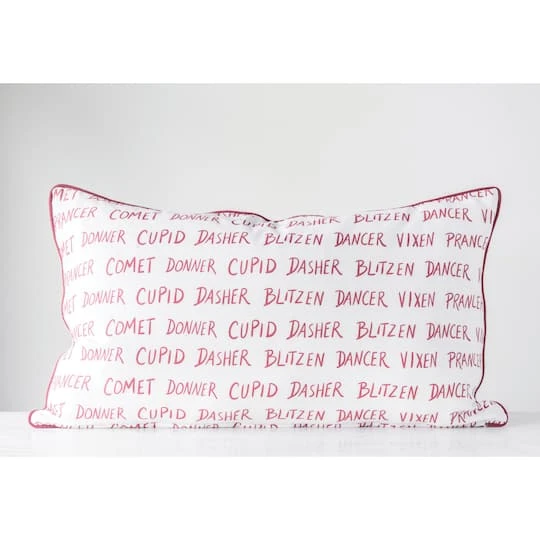 COMET DONNER BLITZEN DANCER VIXEN
PRANCER COMET DONNER CUPID DASHER BLITZEN DANCER VIXEN
MET DONNER CUPID DASHER BLITZEN DANCER VIXEN PRANCER
PRANCER COMET DONNER CUPID DASHER BLITZEN DANCER VIXEN
MET DONNER CUPID DASHER BLITZEN DANCER VIXEN PRANCER
COMET DONNER CUPID DASHER BLITZEN DANCER VIXEN
MET DONNER CUPID DASHER BLITZEN DANCER VIXEN PRANCER
ANCER COMET DONNER CUPID DASHER BLITZEN DANCER
DONNER CUPID DASHER BLITZEN DANCER VIXEN PRANCER
COMET DONNER CUPID DASHER BLITZEN DANCER